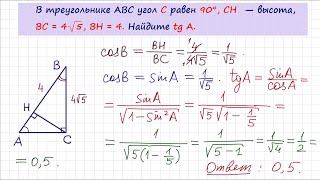 В треугольнике ABC угол C равен 90°, CH — высота,
BC = 4√5, BH = 4. Найдите tg A.
cosB = BH/BC = 4/4√5 = 1/√5.
cosB = sinA = 1/√5. tgA = sinA/cosA =
= sinA/√(1-sin²A) = 1/(√5√(1-1/5)) =
= 1/√(5(1-1/5)) = 1/√(5-1) = 1/√4 = 1/2 =
= 0,5.
Ответ: 0,5.
B
4
4√5
H
A
C